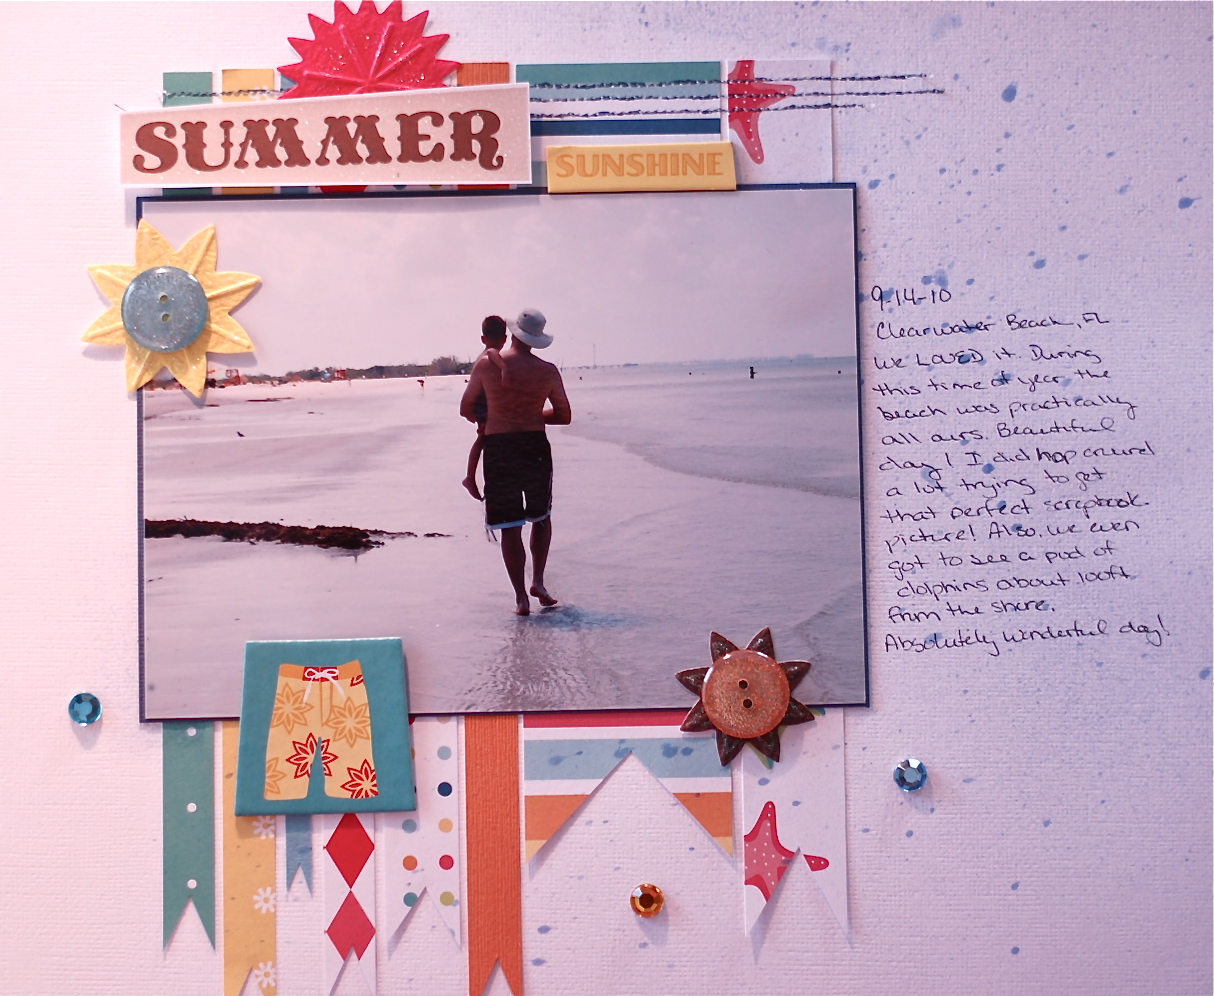 SUMMER
SUNSHINE
9-14-10
Clearwater Beach, FL
We LOVED it. During
this time of year the
beach was practically
all ours. Beautiful
day! I did hop around
a lot trying to get
that perfect scrapbook
picture! Also, we even
got to see a pod of
dolphins about 100ft
from the shore.
Absolutely wonderful day!